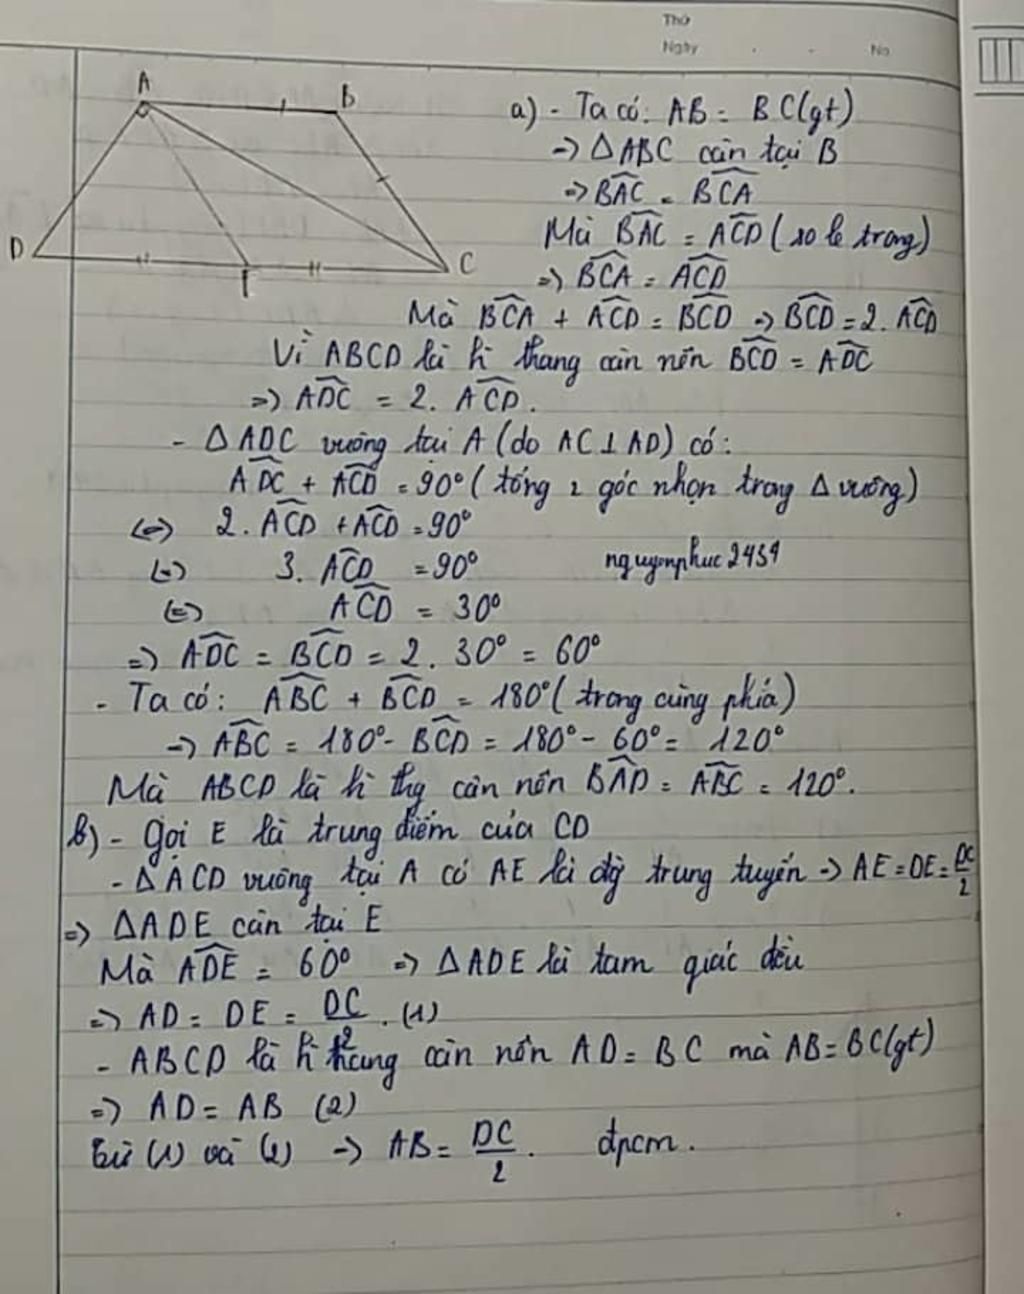 Thứ
Ngày . . No.
A
B
D
C
a) - Ta có: AB = BC(gt)
=> ΔABC cân tại B
=> BAC = BCA
Mà BAC = ACD (so le trong)
=> BCA = ACD
Mà BCA + ACD = BCD => BCD = 2. ACD
Vì ABCD là h thang cân nên BCD = ADC
=> ADC = 2. ACD.
- ΔADC vuông tại A (do AC⊥AD) có:
ADC + ACD = 90° (tổng 2 góc nhọn trong Δ vuông)
<=> 2. ACD + ACD = 90°
<=> 3. ACD = 90°
nguyenphuc2434
<=> ACD = 30°
=> ADC = BCD = 2. 30° = 60°
- Ta có: ABC + BCD = 180° (trong cùng phía)
=> ABC = 180° - BCD = 180° - 60° = 120°
Mà ABCD là h thg cân nên BAD = ABC = 120°.
b) - Gọi E là trung điểm của CD
- ΔACD vuông tại A có AE là đg trung tuyến => AE = DE = DC/2
=> ΔADE cân tại E
Mà ADE = 60° => ΔADE là tam giác đều
=> AD = DE = DC/2 . (1)
- ABCD là h thang cân nên AD = BC mà AB = BC(gt)
=> AD = AB (2)
Từ (1) và (2) => AB = DC/2 . đpcm.